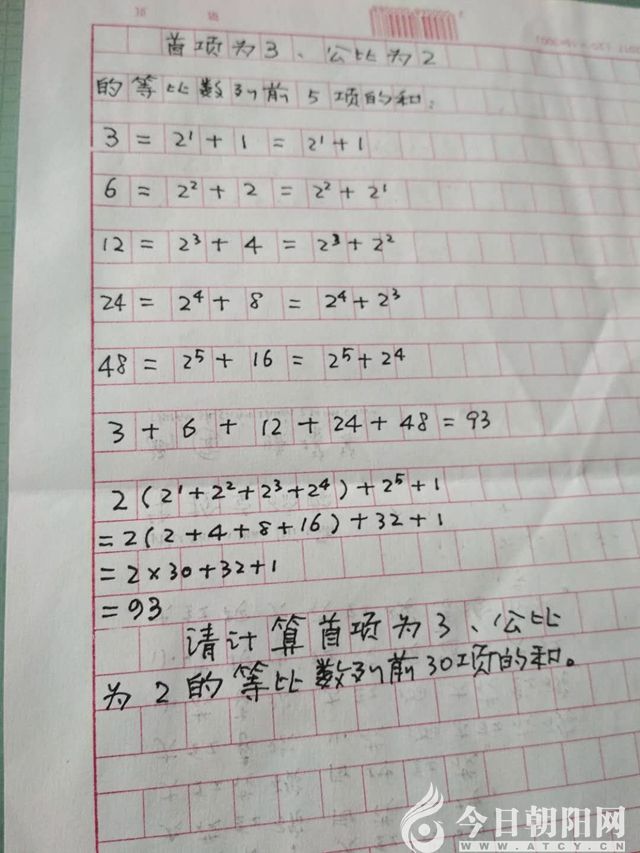 首项为3、公比为2
的等比数列前5项的和:
3 = 2¹ + 1 = 2¹ + 1
6 = 2² + 2 = 2² + 2¹
12 = 2³ + 4 = 2³ + 2²
24 = 2⁴ + 8 = 2⁴ + 2³
48 = 2⁵ + 16 = 2⁵ + 2⁴
3 + 6 + 12 + 24 + 48 = 93
2(2¹+2²+2³+2⁴)+2⁵+1
=2(2+4+8+16)+32+1
=2×30+32+1
=93
请计算首项为3、公比
为2的等比数列前30项的和。
今日朝阳网
WWW.ATCY.CN